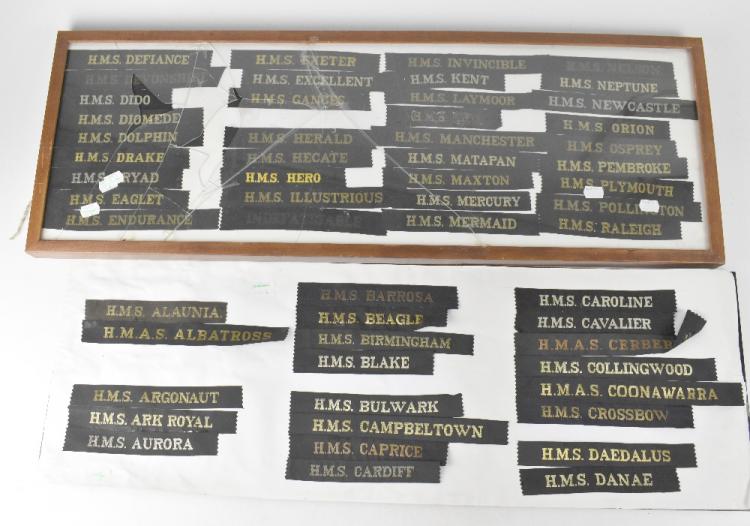 H.M.S. DEFIANCE
H.M.S. DEVONSHIRE
H.M.S. DIDO
H.M.S. DIOMEDE
H.M.S. DOLPHIN
H.M.S. DRAKE
H.M.S. DRYAD
H.M.S. EAGLET
H.M.S. ENDURANCE
H.M.S. EXETER
H.M.S. EXCELLENT
H.M.S. GANGES
H.M.S. HERALD
H.M.S. HECATE
H.M.S. HERO
H.M.S. ILLUSTRIOUS
INDEFATIGABLE
H.M.S. INVINCIBLE
H.M.S. KENT
H.M.S. LAYMOOR
H.M.S.
H.M.S. MANCHESTER
H.M.S. MATAPAN
H.M.S. MAXTON
H.M.S. MERCURY
H.M.S. MERMAID
H.M.S. NELSON
H.M.S. NEPTUNE
H.M.S. NEWCASTLE
H.M.S. ORION
H.M.S. OSPREY
H.M.S. PEMBROKE
H.M.S. PLYMOUTH
H.M.S. POLLINGTON
H.M.S. RALEIGH
H.M.S. ALAUNIA.
H.M.A.S. ALBATROSS
H.M.S. ARGONAUT
H.M.S. ARK ROYAL
H.M.S. AURORA
H.M.S. BARROSA
H.M.S. BEAGLE
H.M.S. BIRMINGHAM
H.M.S. BLAKE
H.M.S. BULWARK
H.M.S. CAMPBELTOWN
H.M.S. CAPRICE
H.M.S. CARDIFF
H.M.S. CAROLINE
H.M.S. CAVALIER
H.M.A.S. CERBER
H.M.S. COLLINGWOOD
H.M.A.S. COONAWARRA
H.M.S. CROSSBOW
H.M.S. DAEDALUS
H.M.S. DANAE